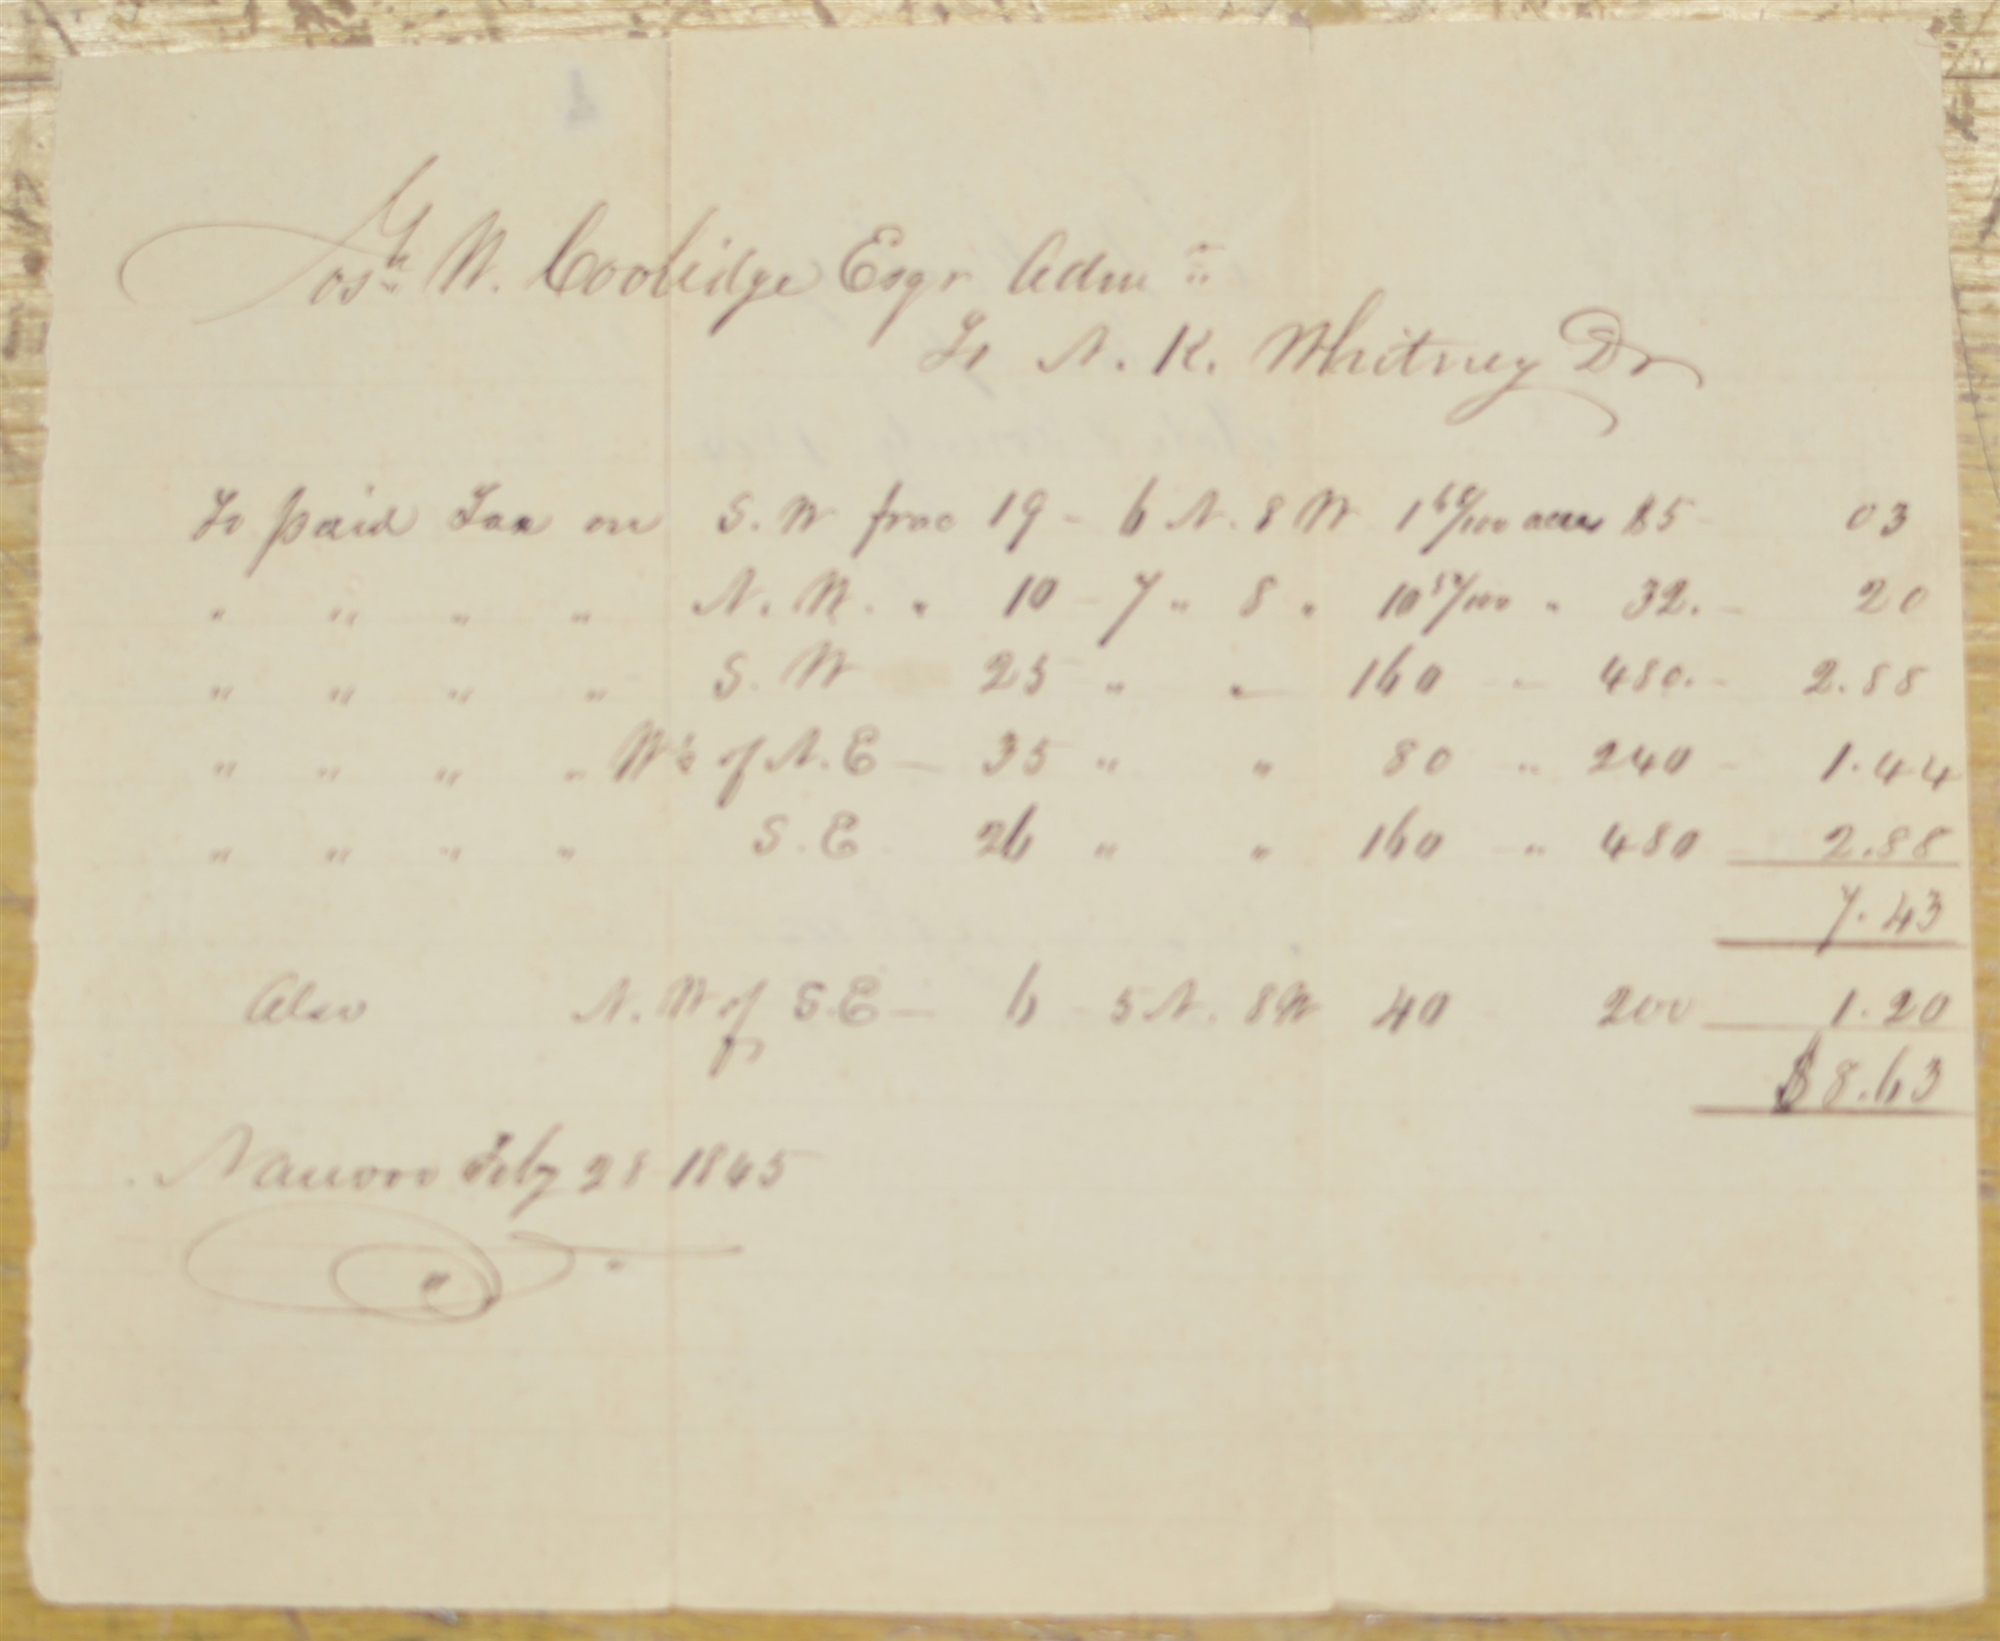 Josh W. Coolidge Esqr Admr
To N. K. Whitney Dr
To paid Tax on S. W frac 19 - 6 N. 8 W 1 68/100 acres 85 - 03
" " " " N. W. " 10 - 7 " 8 " 10 57/100 " 32. - 20
" " " " S. W 25 " " 160 " 480. - 2.88
" " " " W ½ of N. E - 35 " " 80 " 240 - 1.44
" " " " S. E 26 " " 160 " 480 2.88
7.43
Also N. W of S. E - 6 - 5 N. 8 W 40 - 200 1.20
$8.63
Nauvoo Feby 28 1845